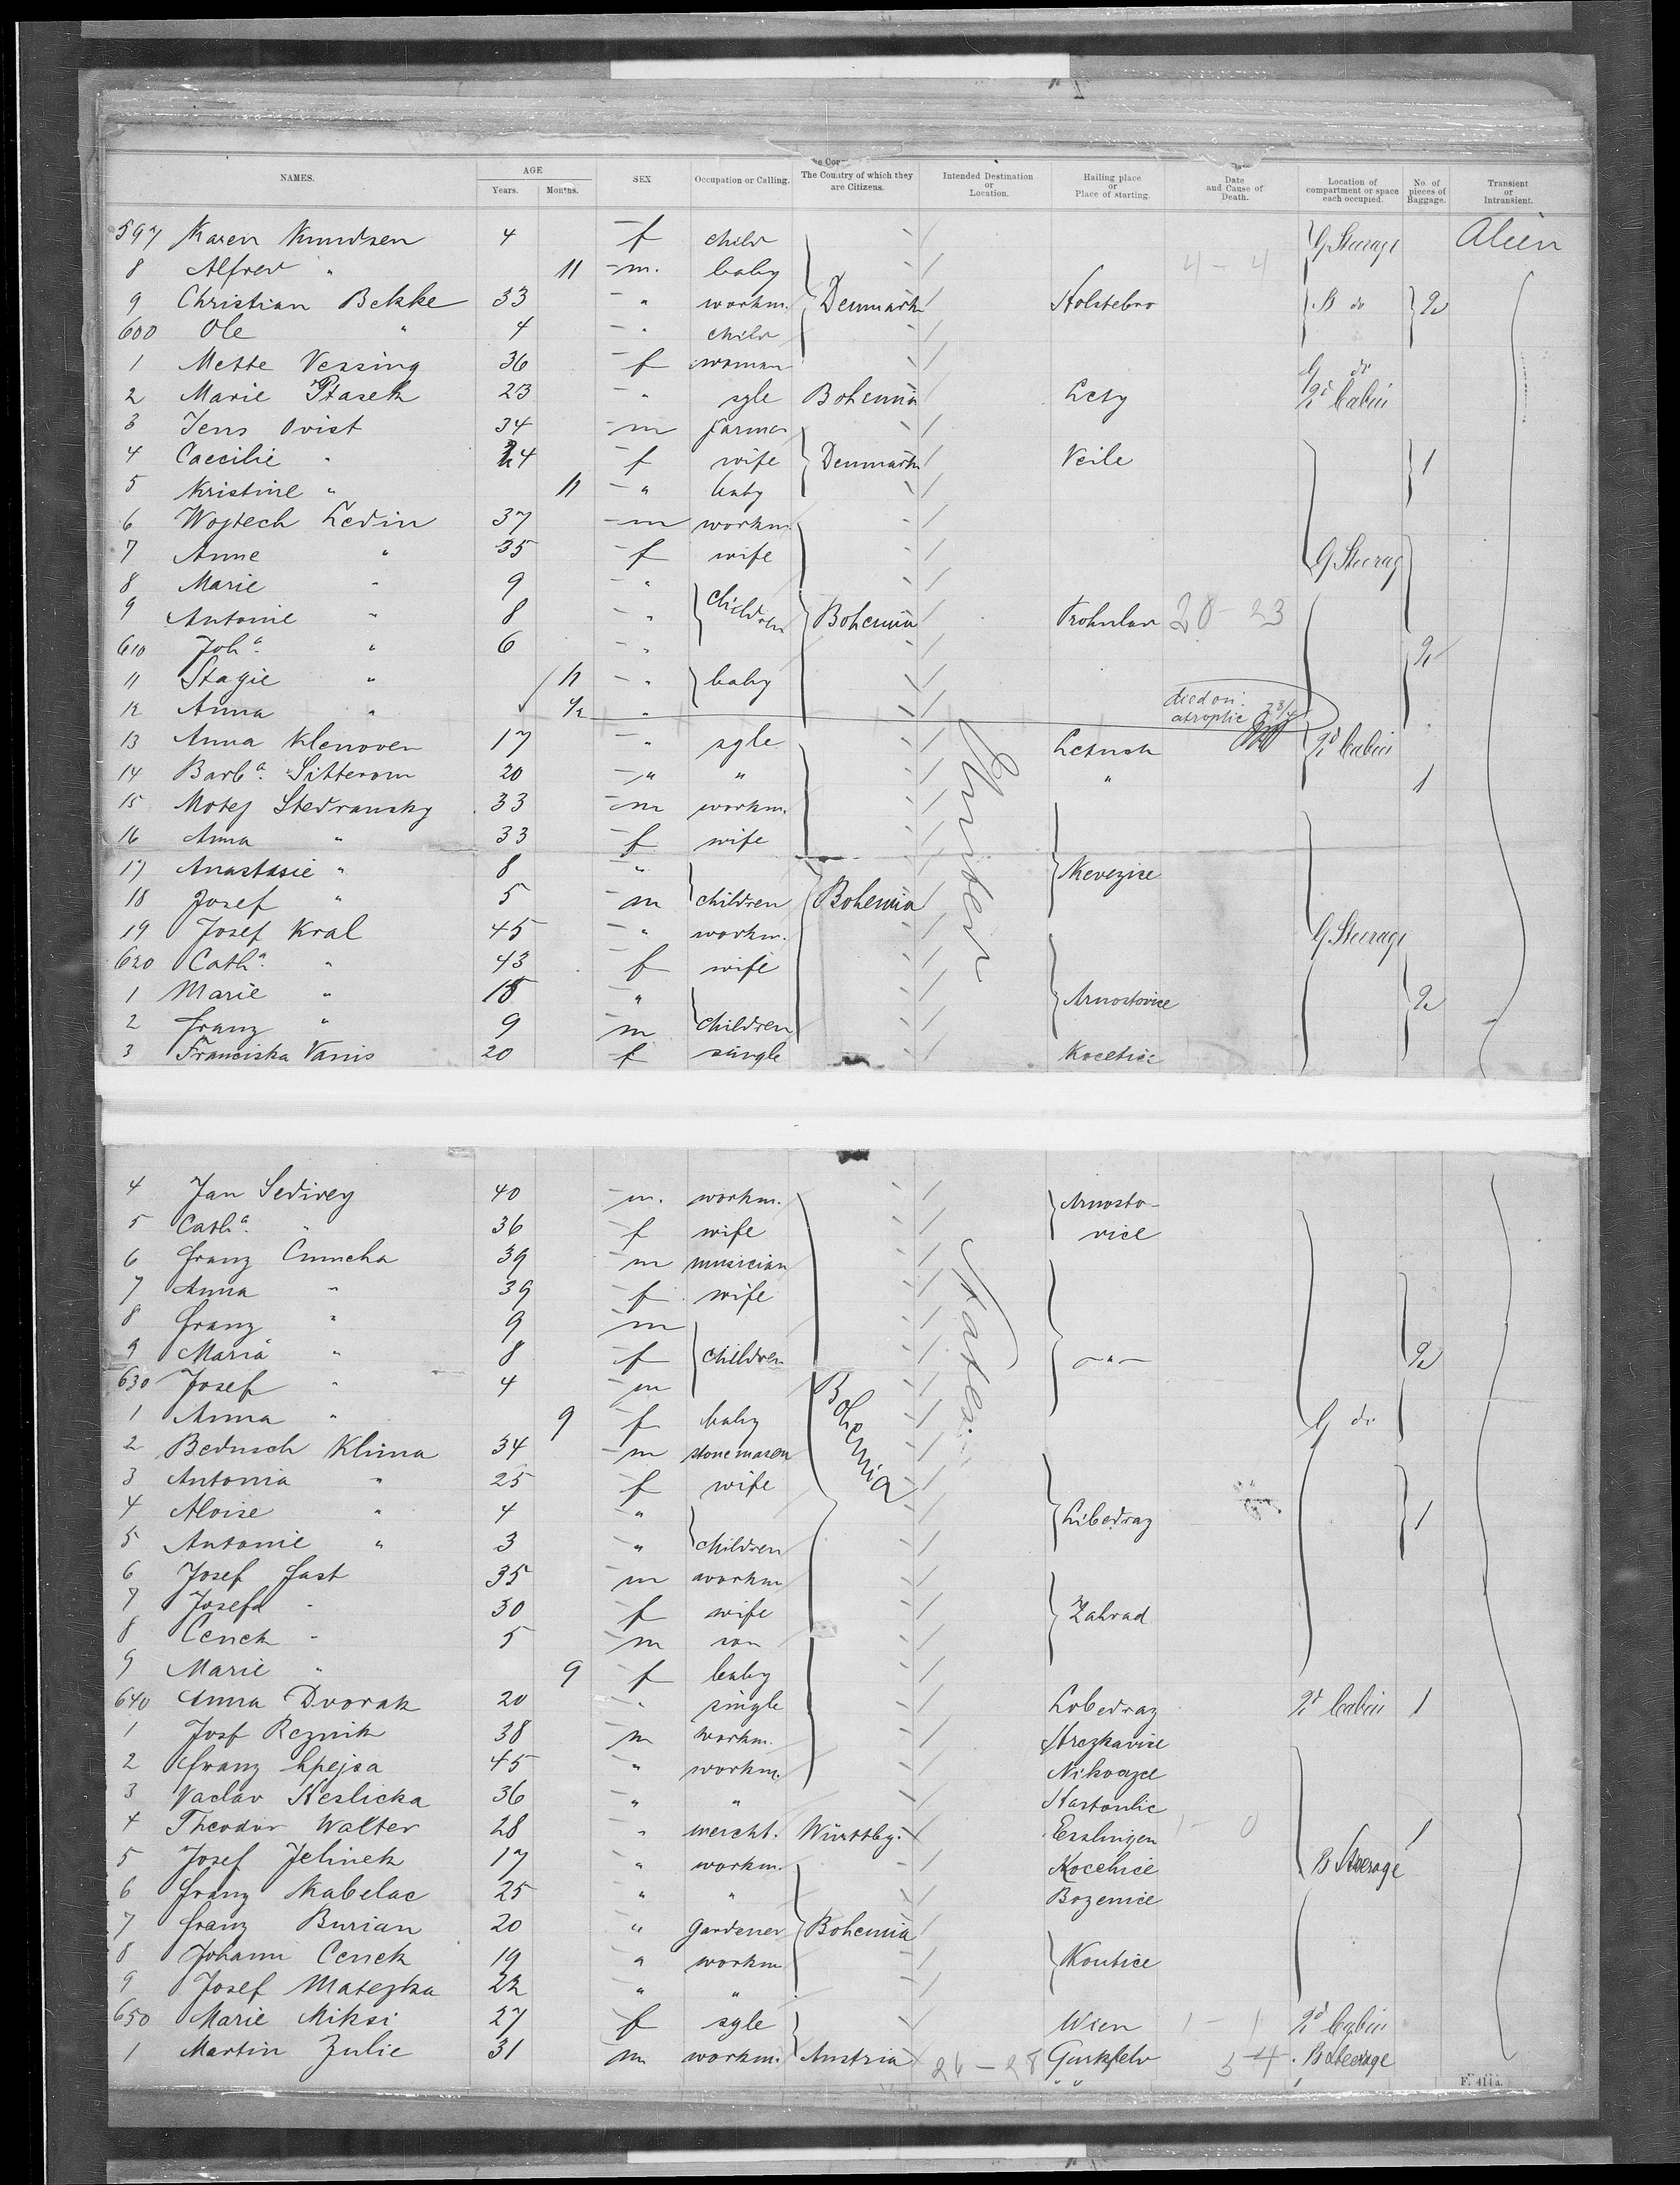 NAMES. AGE Years. Months. SEX Occupation or Calling. The Country of which they are Citizens. Intended Destination or Location. Hailing place or Place of starting. Date and Cause of Death. Location of compartment or space each occupied. No. of pieces of Baggage. Transient or Intransient.
597 Karen Knudsen 4 f child G Steerage Alien
8 Alfred " 11 m. baby 4 - 4
9 Christian Bekke 33 " workm. Denmark Holstebro B do 2
600 Ole " 4 " child
1 Mette Vessing 36 f woman G do
2 Marie Ptasek 23 " sgle Bohemia Lety 2d Cabin
3 Jens Ovist 34 m farmer
4 Caecilie " 24 f wife Denmark Veile 1
5 Kristine " 11 " baby
6 Wojtech Ledin 37 m workm.
7 Anne " 35 f wife G Steerag
8 Marie " 9 "
9 Antonie " 8 " children Bohemia 20 - 23
610 Joha. " 6 " 2
11 Stazie " 11 " baby
12 Anna " 1/2 " died on atrophie
13 Anna Klenoven 17 " sgle Letnik 2d Cabin
14 Barba. Sitterom 20 " " " 1
15 Motej Stedransky 33 m workm.
16 Anna " 33 f wife
17 Anastasie " 8 "
18 Josef " 5 m children Bohemia
19 Josef Kral 45 " workm. G Steerage
620 Catha. " 43 f wife
1 Marie " 18 " Arnostovice 2
2 Franz " 9 m children
3 Franciska Vanis 20 f single Kocetice
United
4 Jan Sedivey 40 m. workm. Arnosto-
5 Catha. " 36 f wife vice
6 Franz Cumcha 39 m musician
7 Anna " 39 f wife
8 Franz " 9 m
9 Maria " 8 f children — " — 2
630 Josef " 4 m
1 Anna " 9 f baby Bohemia G do
2 Bedrisch Klima 34 m stonemason
3 Antonia " 25 f wife
4 Aloise " 4 " Libedraz 1
5 Antonie " 3 " children
6 Josef Fast 35 m workm
7 Josefa " 30 f wife Zahrad
8 Cenek " 5 m son
9 Marie " 9 f baby
640 Anna Dvorak 20 " single Lobedraz 2d Cabin 1
1 Josf Reznik 38 m workm.
2 Franz Spejca 45 " workm.
3 Vaclav Keslicka 36 " "
4 Theodor Walter 28 " mercht. Württbg. Esslingen 1 - 0 1
5 Josef Jelinek 17 " workm. Kocehice B Steerage
6 Franz Kabelac 25 " " Bozenice
7 Franz Burian 20 " gardener Bohemia
8 Johann Cenek 19 " workm Koutice
9 Josef Matejka 22 " "
650 Marie Miksi 27 f sgle Wien 1 - 1 2d Cabin
1 Martin Zulic 31 m workm. Austria 26 - 28 Gurkfeld 3 4 B Steerage
States
F. 411a.